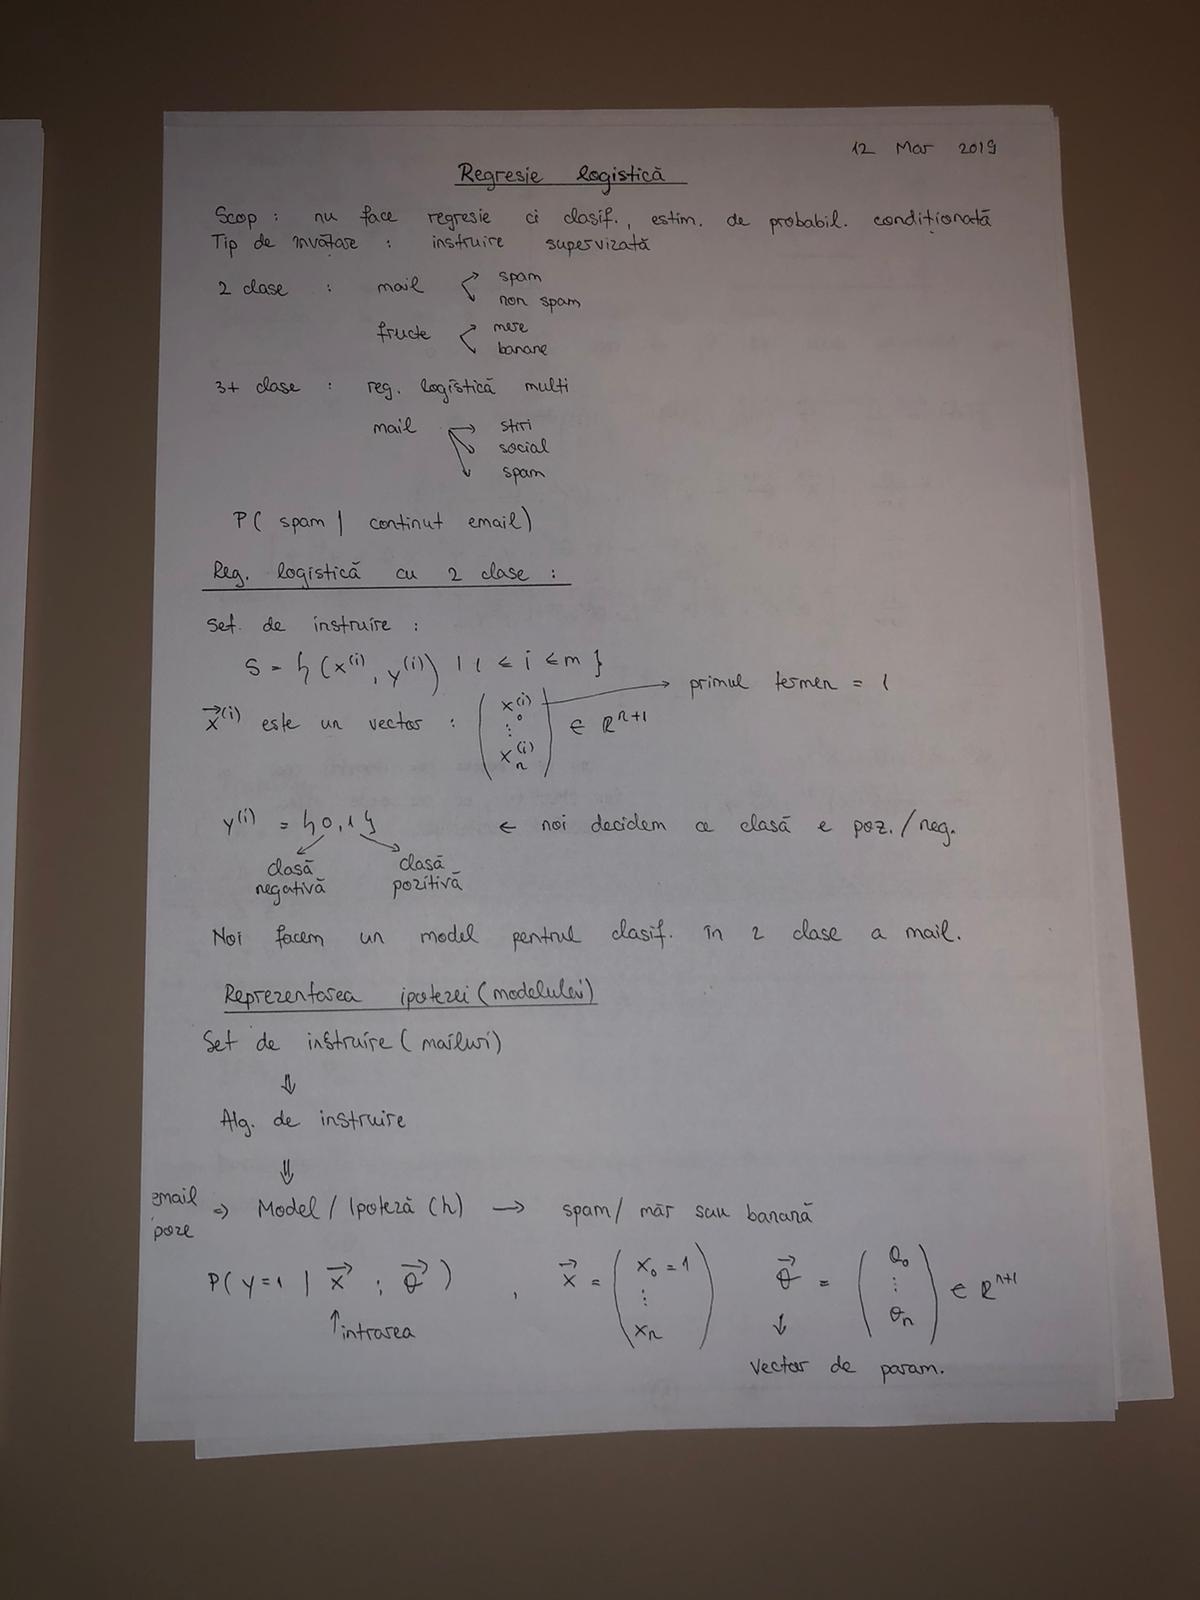 12 Mar 2019
Regresie logistică
Scop : nu face regresie ci clasif., estim. de probabil. condiționată
Tip de învățare : instruire supervizată
2 clase : mail < spam
non spam
fructe < mere
banane
3+ clase : reg. logistică multi
mail → stiri
social
spam
P( spam | continut email)
Reg. logistică cu 2 clase :
Set de instruire :
S = { (x⁽ⁱ⁾, y⁽ⁱ⁾) | 1 ≤ i ≤ m }
x⃗⁽ⁱ⁾ este un vector : ( x₀⁽ⁱ⁾ ⋮ xₙ⁽ⁱ⁾ ) ∈ ℝⁿ⁺¹ → primul termen = 1
y⁽ⁱ⁾ = {0,1} ← noi decidem ce clasă e poz./neg.
clasă negativă
clasă pozitivă
Noi facem un model pentrul clasif. în 2 clase a mail.
Reprezentarea ipotezei (modelului)
Set de instruire ( mailuri)
⇓
Alg. de instruire
⇓
email
poze
⇒ Model / Ipoteză (h) → spam/ măr sau banană
P( y=1 | x⃗ ; θ⃗ ) , x⃗ = ( x₀ = 1 ⋮ xₙ ) θ⃗ = ( θ₀ ⋮ θₙ ) ∈ ℝⁿ⁺¹
↑ intrarea
↓
vector de param.